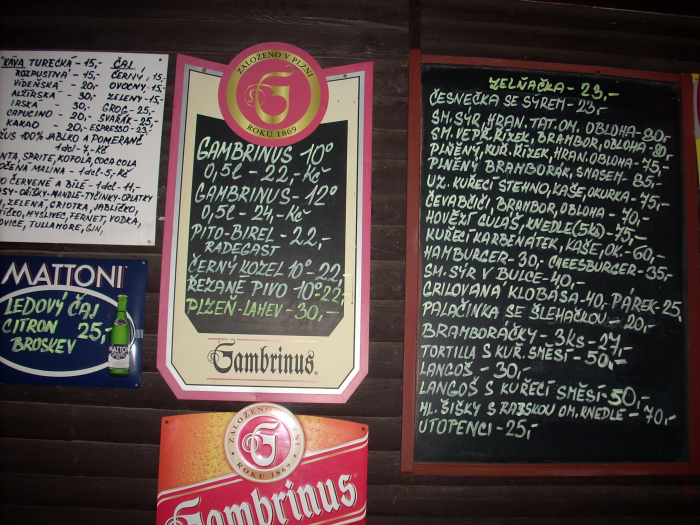 KÁVA TURECKÁ - 15,- ČAJ
ROZPUSTNÁ - 15,- ČERNÝ, 15,-
VÍDEŇSKÁ - 20,- OVOCNÝ - 15,-
ALŽÍRSKÁ - 30,- ZELENÝ - 15,-
IRSKÁ - 30,- GROG - 25,-
CAPUCINO - 20,- SVAŘÁK - 25,-
KAKAO - 20,- ESPRESSO - 23,-
ŽUS 100% JABLKO A POMERANČ
1dcl - 7,- Kč
NTA, SPRITE, KOFOLA, COCA COLA
OČENÁ MALINA - 1dcl - 5,- Kč
O ČERVENÉ A BÍLÉ - 1dcl - 11,-
ASY - OŘÍŠKY - MANDLE - TYČINKY - OPLATKY
, ZELENÁ, GRIOTKA, JABLÍČKO,
TIČKO, MYSLIVEC, FERNET, VODKA,
OVICE, TULLAMORE, GIN,
MATTONI
LEDOVÝ ČAJ
CITRON 25,-
BROSKEV
MATTONI
ZALOŽENO V PLZNI
G
ROKU 1869
GAMBRINUS 10°
0,5l - 22,- Kč
GAMBRINUS - 12°
0,5l - 24,- Kč
PITO - BIREL - 22,-
RADEGAST
ČERNÝ KOZEL 10° - 22,-
ŘEZANÉ PIVO 10° - 22,-
PLZEŇ - LAHEV - 30,-
Gambrinus
ZALOŽENO V PLZNI
G
ROKU 1869
Gambrinus
ZELŇAČKA - 23,-
ČESNEČKA SE SÝREM - 23,-
SM. SÝR, HRAN. TAT. OM. OBLOHA - 80,-
SM. VEPŘ. ŘÍZEK, BRAMBOR, OBLOHA - 80,-
PLNĚNÝ, KUŘ. ŘÍZEK, HRAN. OBLOHA - 75,-
PLNĚNÝ BRAMBORÁK, SMASEM - 85,-
UZ. KUŘECÍ STEHNO, KAŠE, OKURKA - 75,-
ČEVABČIČI, BRAMBOR, OBLOHA - 70,-
HOVĚZÍ GULÁŠ, KNEDLE (5KS) - 75,-
KUŘECÍ KARBENÁTEK, KAŠE, OK. - 60,-
HAMBURGER - 30,- CHEESBURGER - 35,-
SM. SÝR V BULCE - 40,-
GRILOVANÁ KLOBÁSA - 40,- PÁREK - 25,-
PALAČINKA SE ŠLEHAČKOU - 20,-
BRAMBORÁČKY - 3ks - 27,-
TORTILLA S KUŘ. SMĚSÍ - 50,-
LANGOŠ - 30,-
LANGOŠ S KUŘECÍ SMĚSÍ - 50,-
HL. ŠIŠKY S RAJSKOU OM. KNEDLE - 70,-
UTOPENCI - 25,-